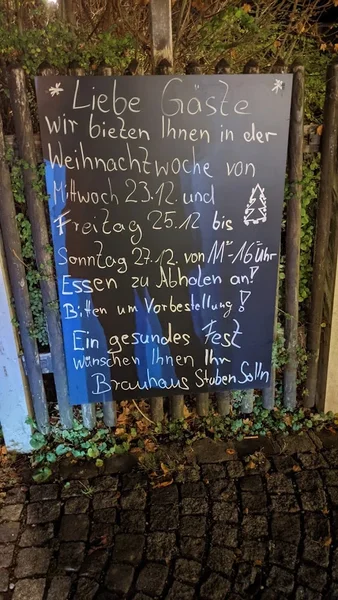 Liebe Gäste
wir bieten Ihnen in der
Weihnachtwoche von
Mittwoch 23.12. und
Freitag 25.12 bis
Sonntag 27.12. von 11⁰⁰-16 Uhr
Essen zu Abholen an!
Bitten um Vorbestellung!
Ein gesundes Fest
wünschen Ihnen Ihr
Brauhaus Stuben Solln